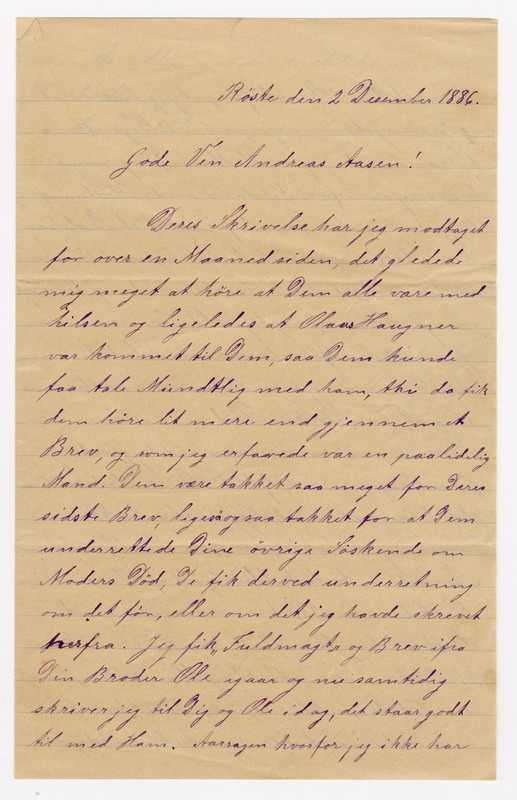 Röste den 2 Desember 1886.
Gode Ven Andreas Aasen!
Deres Skrivelse har jeg modtaget
for over en Maaned siden, det gledede
mig meget at höre at Dem alle vare med
hilsen og ligeledes at Olaus Haugner
var kommet til Dem, saa Dem kunde
faa tale Mündtlig med ham, thi da fik
dem höre lit mere end gjennem et
Brev, og som jeg erfarede var en paalidelig
Mand. Dem være takket saa meget for Deres
sidste Brev, ligesaa ogsaa takket for at Dem
underrettede Dine övrige Söskende om
Moders Död, De fik derved underretning
om det för, eller om det jeg havde skrevet
herfra. Jeg fik „Fuldmagt" og Brev ifra
Din Broder Ole igaar og nu samtidig
skriver jeg til Dig og Ole idag, det staar godt
til med Ham. Aarsagen hvorfor jeg ikke har